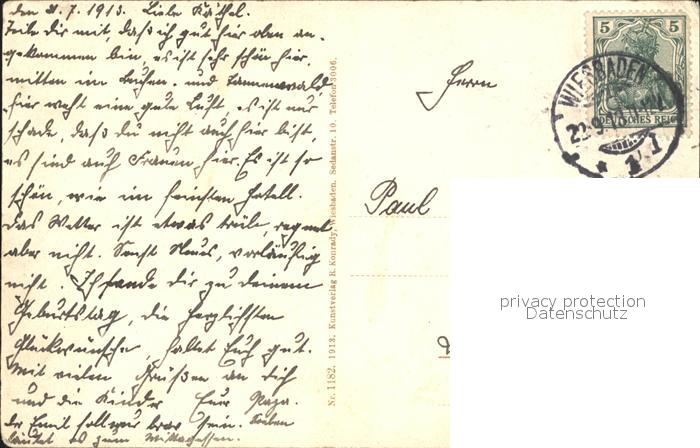 den 21.7.1913. Liebe Käthel.
Teile dir mit, daß ich gut hier oben an-
gekommen bin, es ist sehr schön hier,
mitten im Buchen- und Tannenwald
hier weht eine gute Luft, es ist nur
schade, daß du nicht auch hier bist,
es sind auch Frauen hier. Es ist so
schön, wie im feinsten Hotell.
Das Wetter ist etwas trüb, regnet
aber nicht. Sonst Neues, vorläufig
nicht. Ich sende dir zu deinem
Geburtstag, die herzlichsten
Glückwünsche, haltet Euch gut.
Mit vielen Grüßen an dich
und die Kinder Euer Papa.
der Emil soll nur brav sein. Soeben
läutet es zum Mittagessen.
Nr. 1182. 1913. Kunstverlag R. Konrady, Wiesbaden. Sedanstr. 10. Telefon 3006.
5 5
DEUTSCHES REICH
WIESBADEN
1
Herrn
Paul
privacy protection
Datenschutz